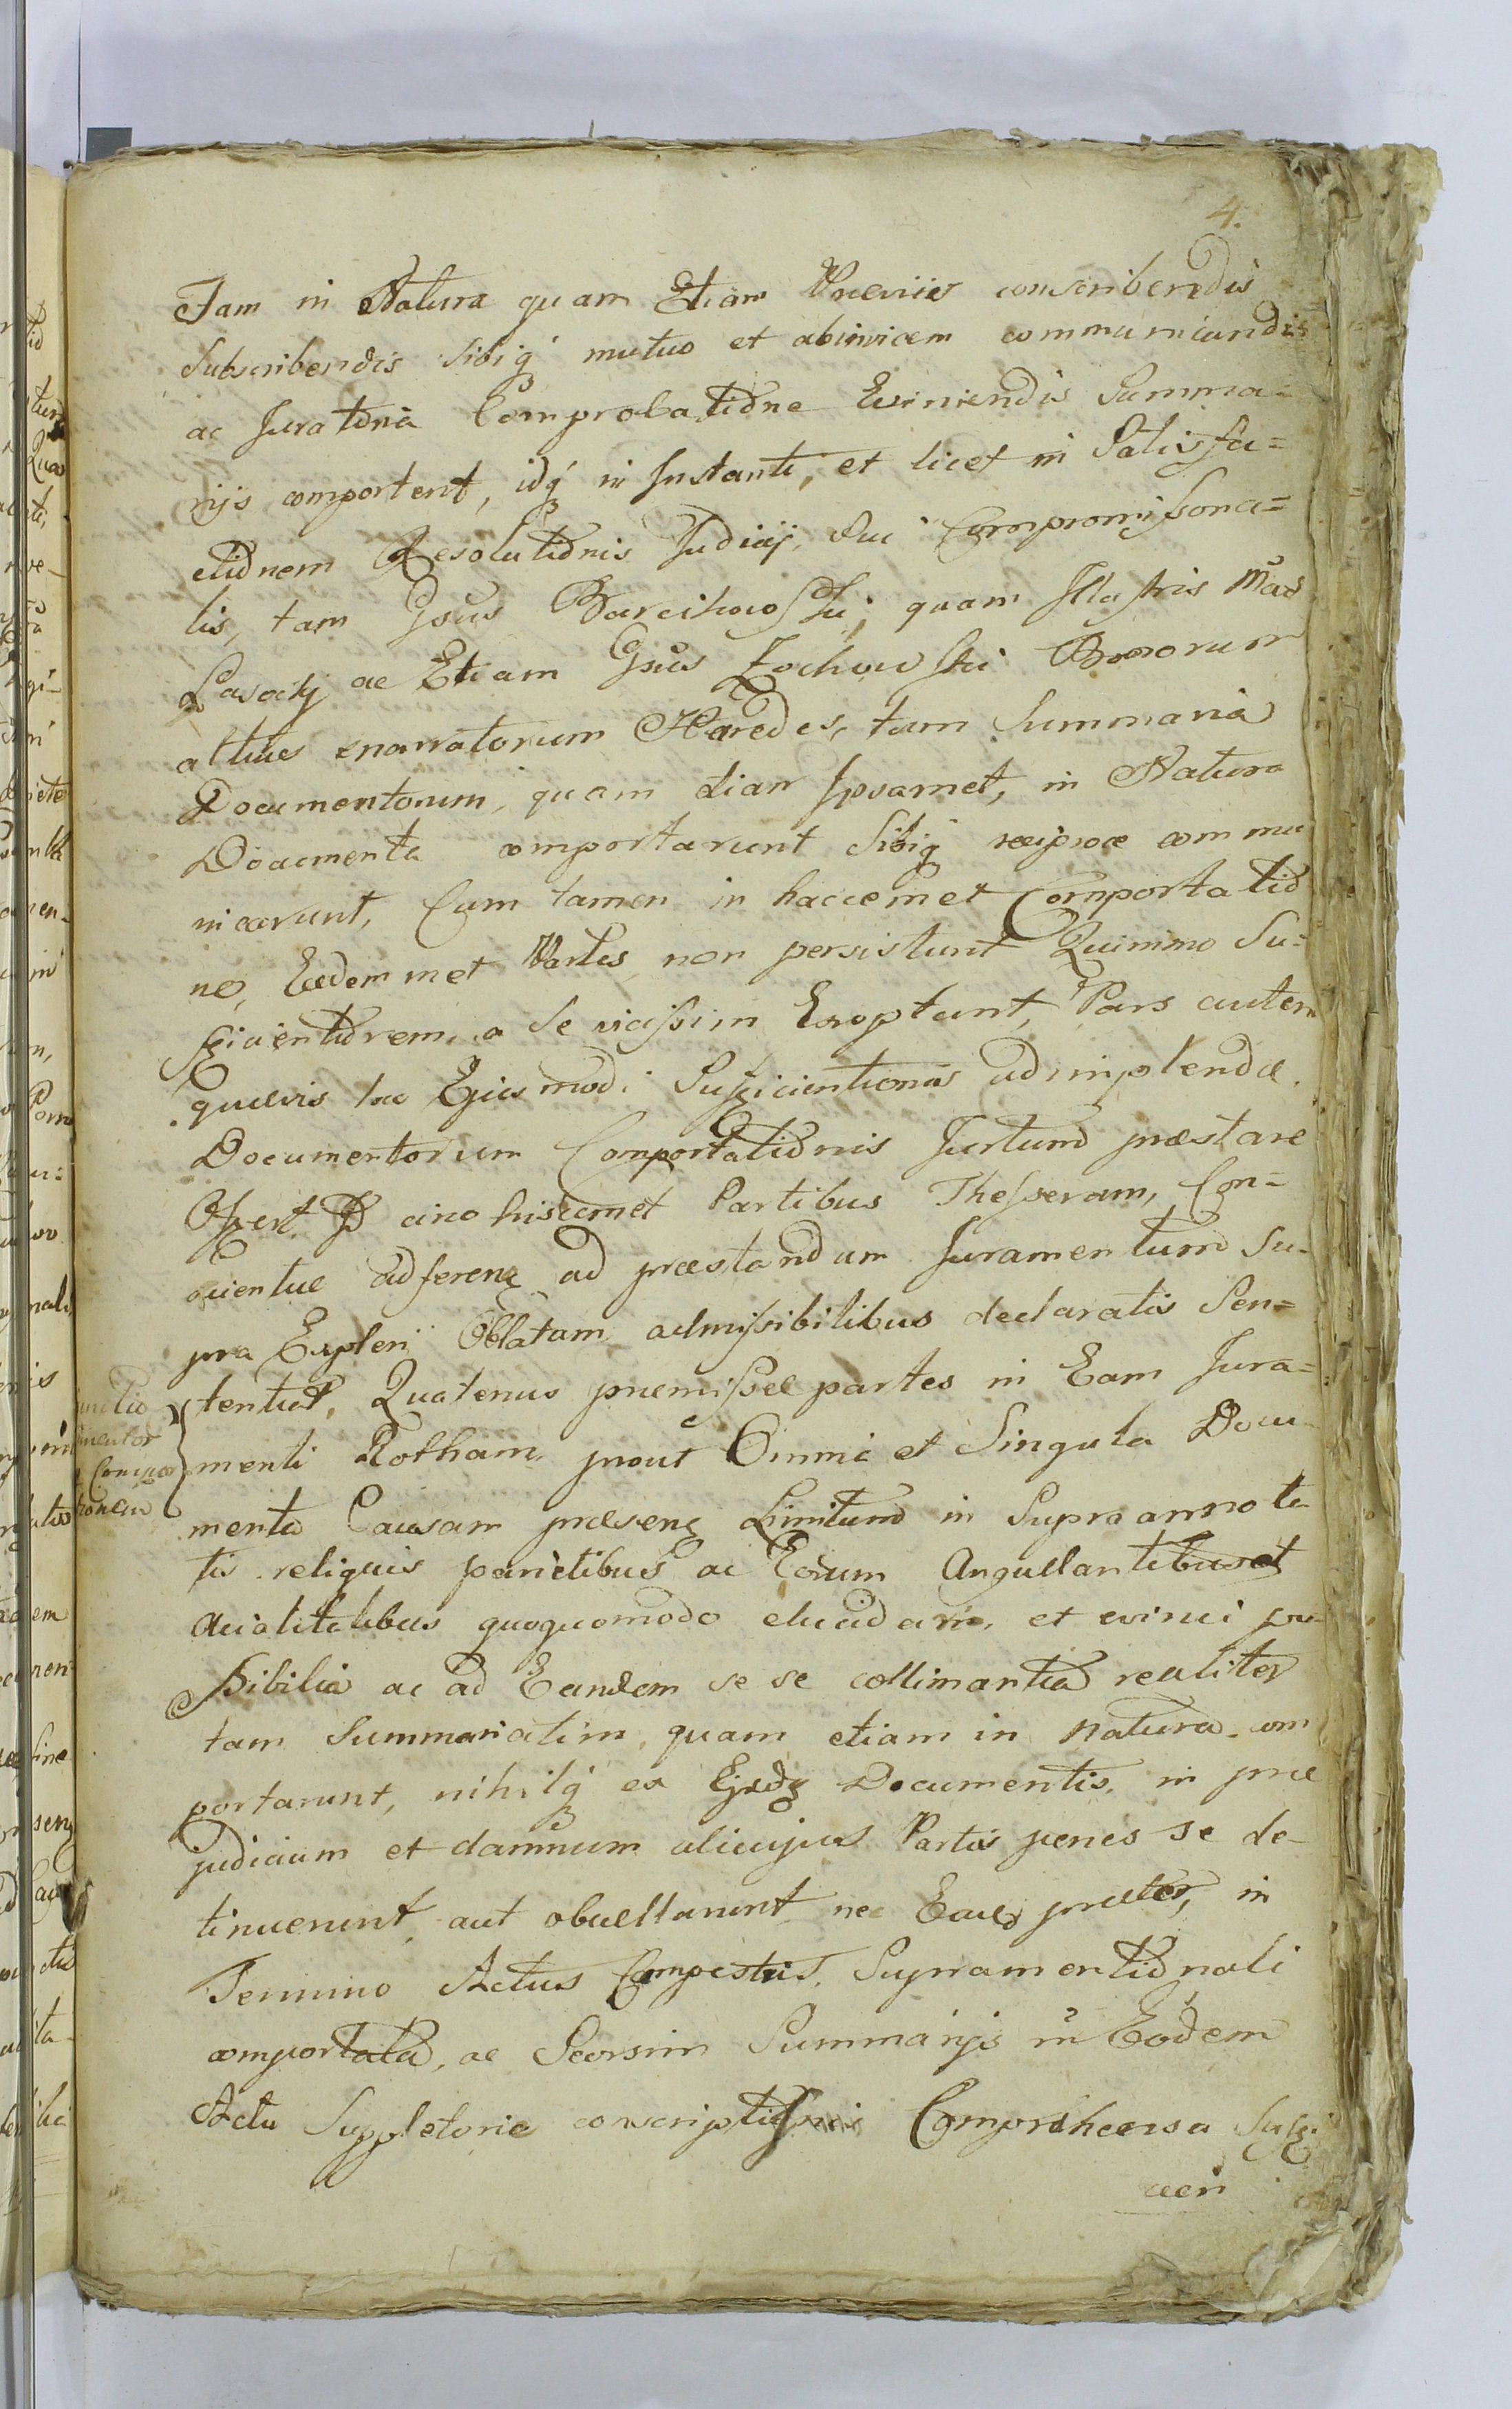 4.
Tam in Natura quam Etiam Praeviis conscribendis
Subscribendis Sibiq mutuo et abinvicem communicandis
ac Juratoria Comprobatione Eviniendis Summa=
rijs comportent, idq in Instanti, et licet in Satisfa=
ctionem Resolutionis Judicij, Sui Compromissoria=
lis, tam Gsus Barcikowski, quam Illustris Mag
Lasocki ac Etiam Gsus Zochowski Bonorum
altius enarratorum Haeredes, tam Summaria
Documentorum, quam etiam Ipsamet, in Natura
Documenta comportarunt Sibiq reciproce commu
nicarunt, Cum tamen in haccemet Comportatio
ne, Eaedemmet Partes non persistunt Quinimo Su=
fficientiorem, a Se vicissim Exoptant, Pars autem
quaevis Ejusmodi Sufficientioris adimplendae
Documentorum Comportationis Jurium praestare
Offert. hiscemet Partibus Thesseram, Con=
adferen ad praestandum Juramentum Su-
pra Expleri Oblatam admissibilibus declaratis Sen=
tentiat, Quatenus praemissae partes in Eam Jura=
menti Rotham, prout Omnia et Singula Docu-
menta Causam praesen Limitum in Supra annota
tis reliquis parietibus ac Eorum Angullantibus et
Acialitatibus quoquomodo elucidare, et evinci po-
ssibilia ac ad Eandem se se collimantia realiter
tam Summariatim, quam etiam in natura com
portarunt, nihilq ex Documentis, in prae
judicium et damnum alicujus Partis penes se de-
tinuerunt, aut obvellarunt nec praeter, in
Termino Actus Campestris, Supramentionali
comportata, ac Seorsim Summarijs in Eodem
Actu Suppletoria Comprehensa Suffi
cien
mentor
Compor
tionem